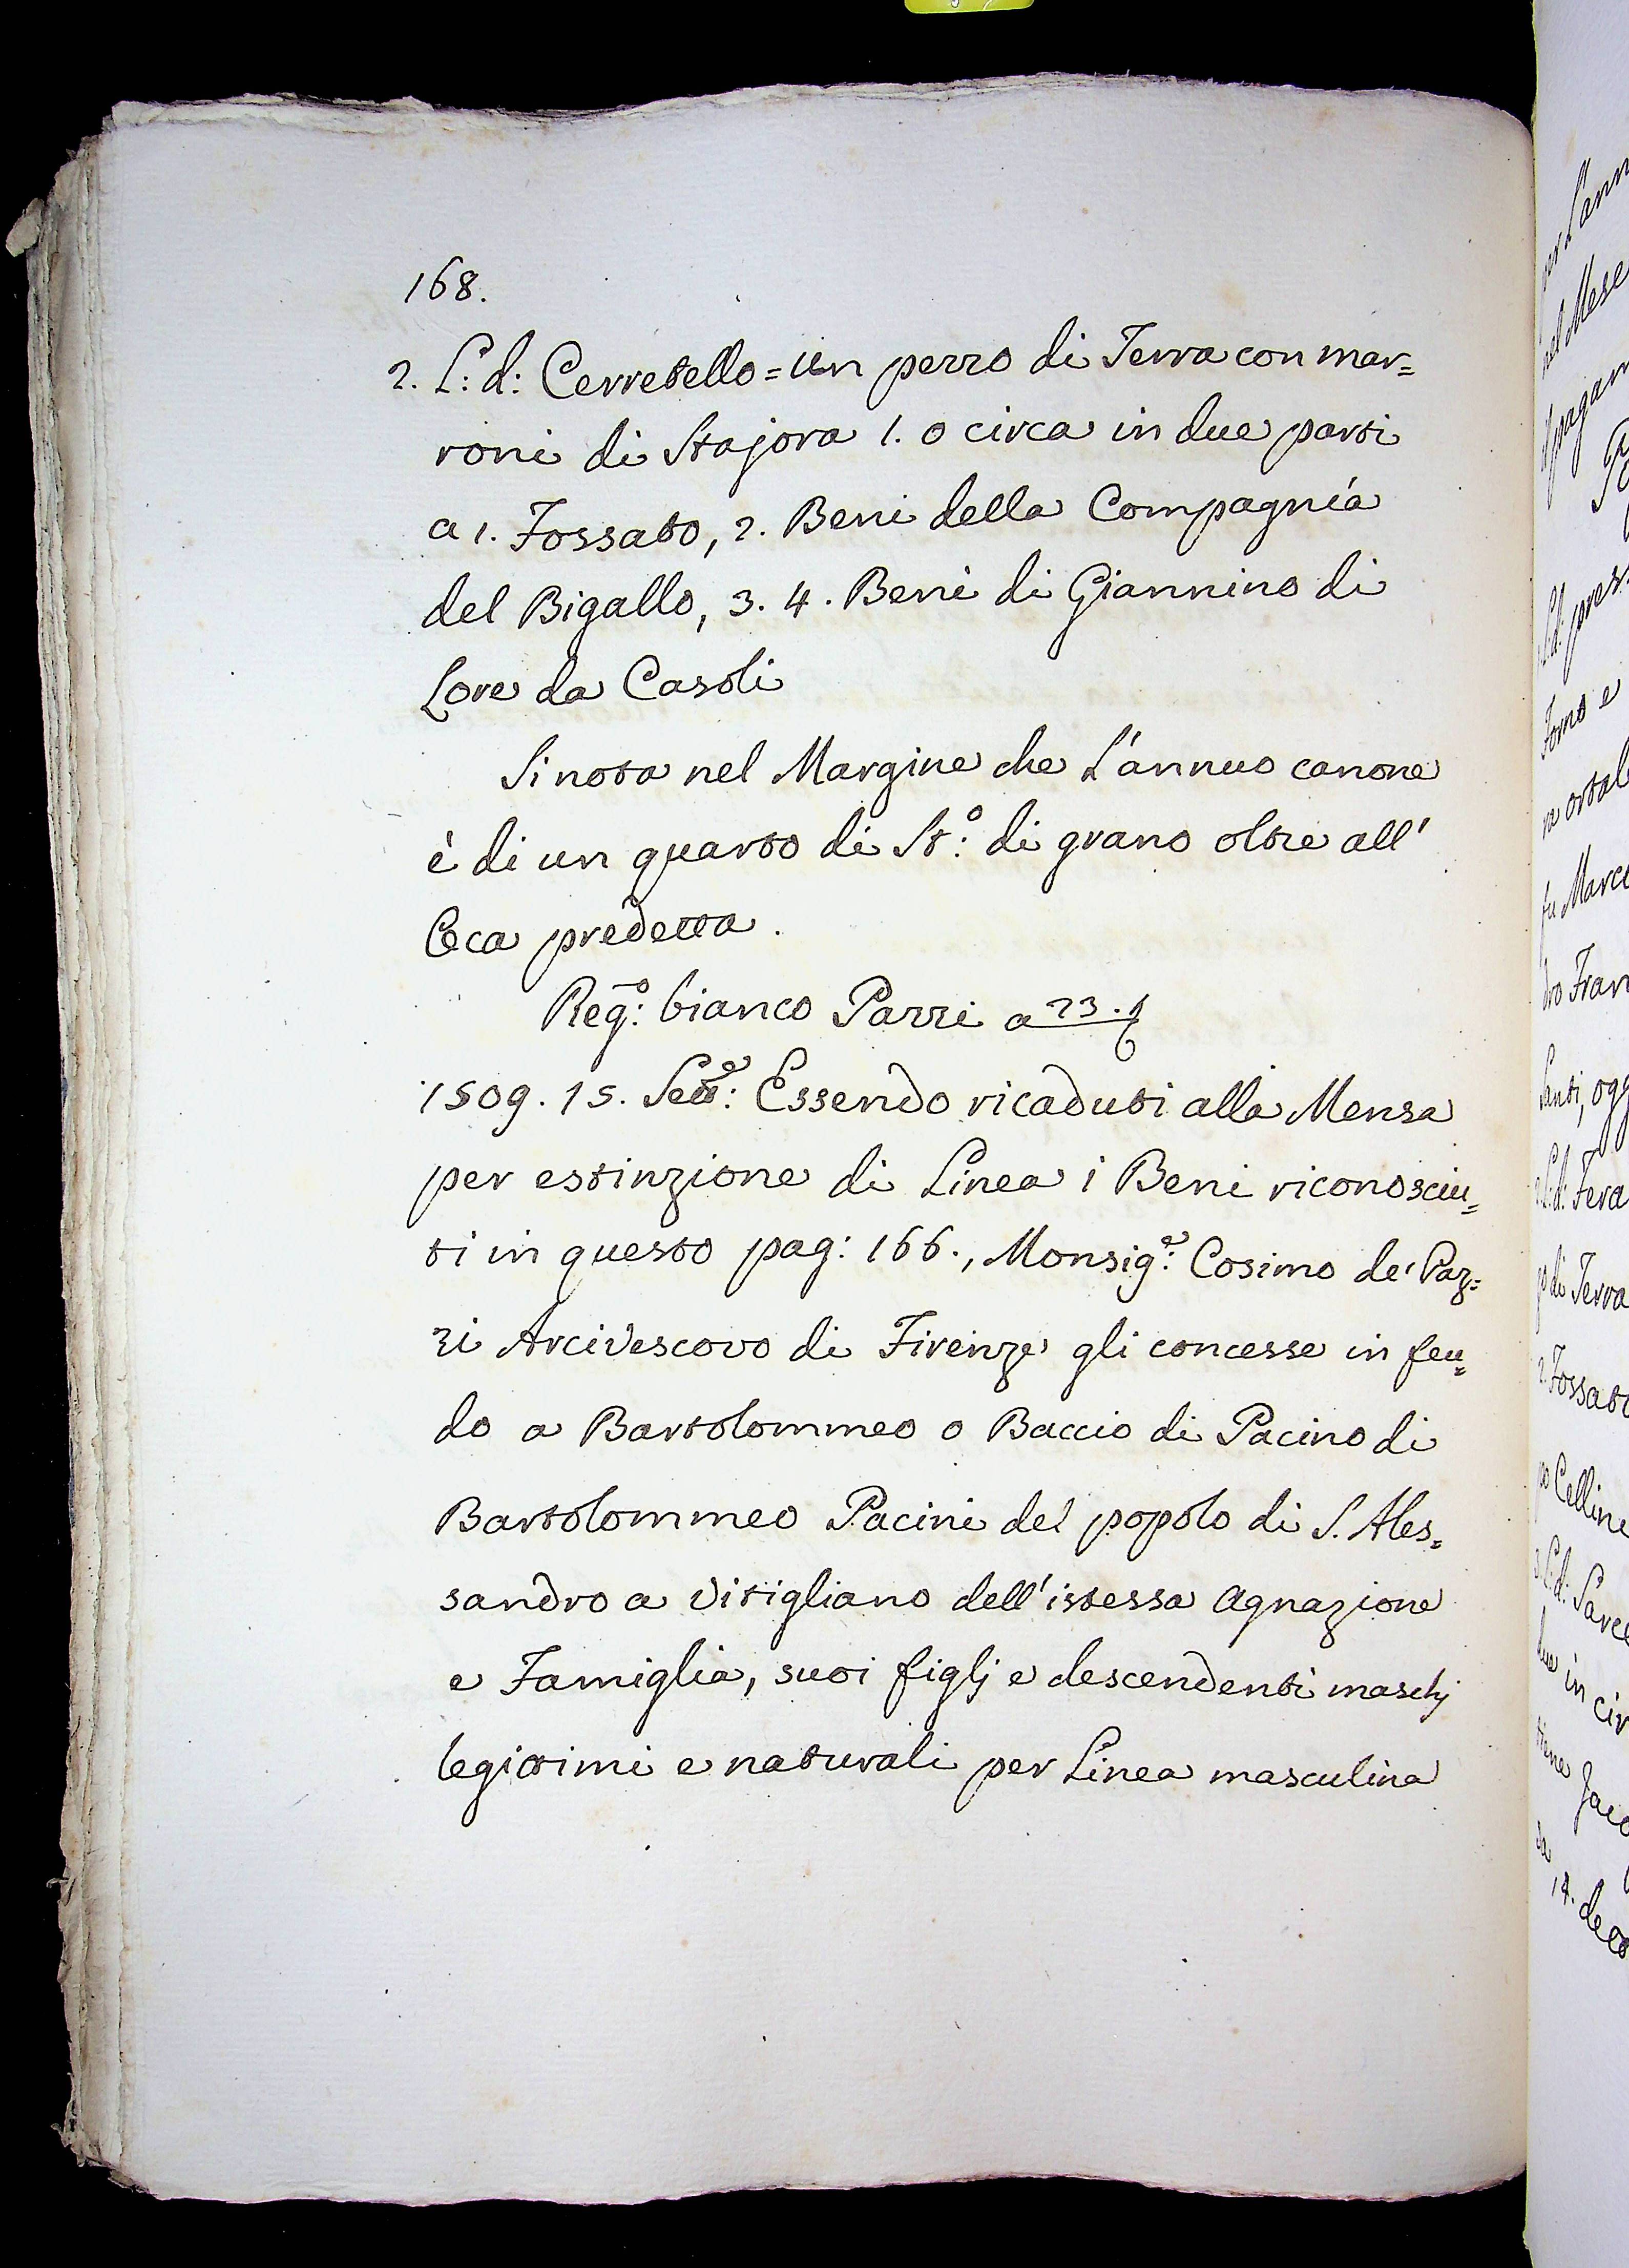 168.
2. L: d: Cerretello = un pezzo di Terra con mar=
roni di Stajora 1. o circa in due parti
a 1. Fossato, 2. Beni della Compagnía
del Bigallo, 3. 4. Beni di Giannino di
Lore da Casoli
Si nota nel Margine che L'annuo canone
è di un quarto di St:º di grano oltre all'
Oca predetta.
Reg:º bianco Pazzi a 23.
1509. 15. Sett:e Essendo ricaduti alla Mensa
per estinzione di Linea i Beni riconosciu=
ti in questo pag: 166., Monsig:e Cosimo de' Paz=
zi Arcivescovo di Firenze gli concesse in feu=
do a Bartolommeo o Baccio di Pacino di
Bartolommeo Pacini del popolo di S. Ales=
sandro a Vitigliano dell'istessa Agnazione
e Famiglia, suoi figlj e descendenti maschj
legittimi e naturali per Linea masculina